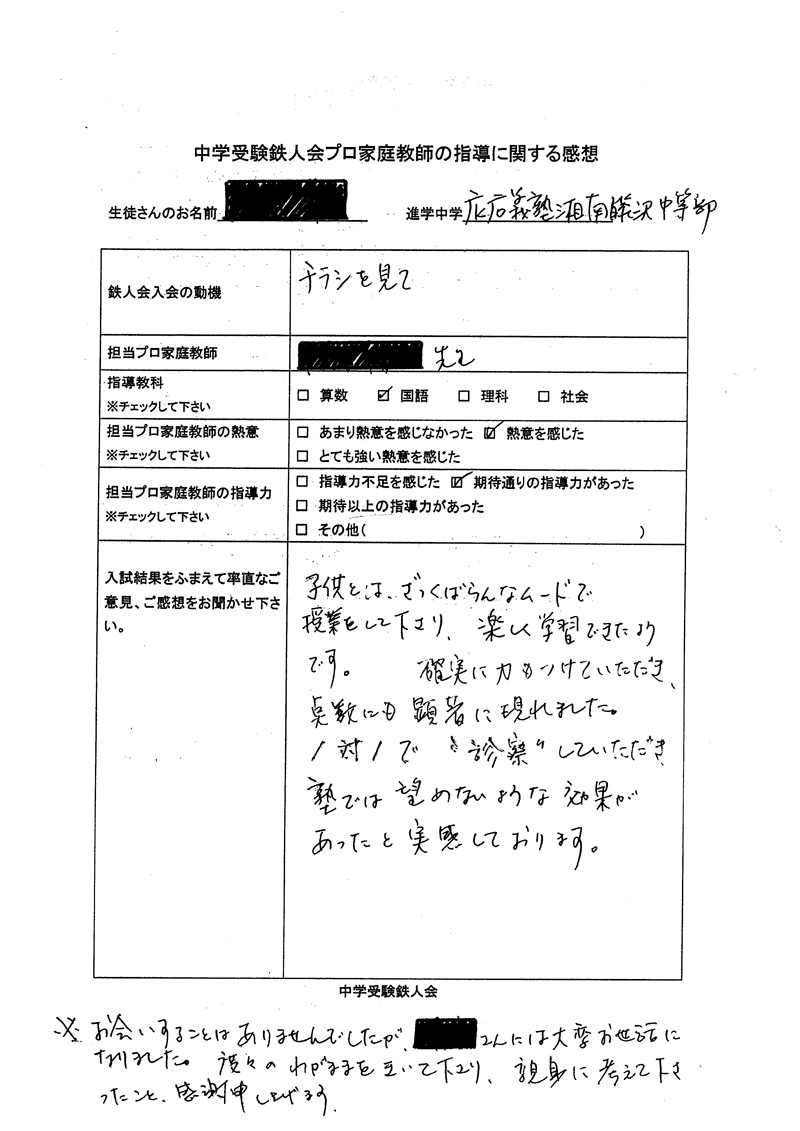 中学受験鉄人会プロ家庭教師の指導に関する感想
生徒さんのお名前 進学中学 慶応義塾湘南藤沢中等部
鉄人会入会の動機 チラシを見て
担当プロ家庭教師 先生
指導教科
※チェックして下さい
□ 算数 ☑ 国語 □ 理科 □ 社会
担当プロ家庭教師の熱意
※チェックして下さい
□ あまり熱意を感じなかった ☑ 熱意を感じた
□ とても強い熱意を感じた
担当プロ家庭教師の指導力
※チェックして下さい
□ 指導力不足を感じた ☑ 期待通りの指導力があった
□ 期待以上の指導力があった
□ その他( )
入試結果をふまえて率直なご
意見、ご感想をお聞かせ下さ
い。
子供とは、ざっくばらんなムードで
授業をして下さり、楽しく学習できたよう
です。 確実に力もつけていただき、
点数にも顕著に現れました。
1対1で〝診察〟していただき
塾では望めないような効果が
あったと実感しております。
中学受験鉄人会
※ お会いすることはありませんでしたが、 さんには大変お世話に
なりました。度々のわがままを聞いて下さり、親身に考えて下さ
ったこと、感謝申し上げます。